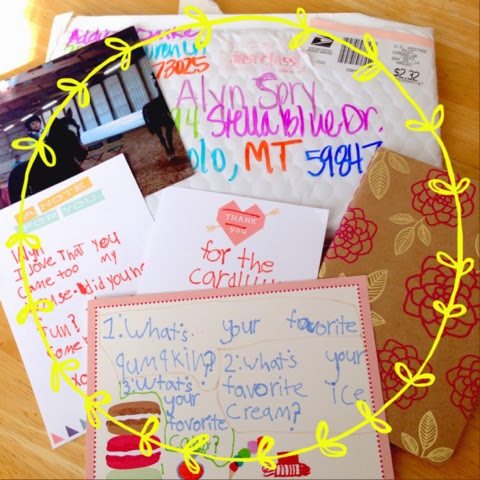 73025
first class
U.S. POSTAGE
$2.32
Alyn Spry
Stella Blue Dr.
olo, MT 59847
A NOTE
FOR YOU
Alyn
I love That you
Came too my
ouse. did you ha
Fun?
Come b
THANK
you
for the
card!!!!
1. What's... your favorite
qumqkin?
2. What's your
favorite ice
Cream?
3. What's
your
favorite